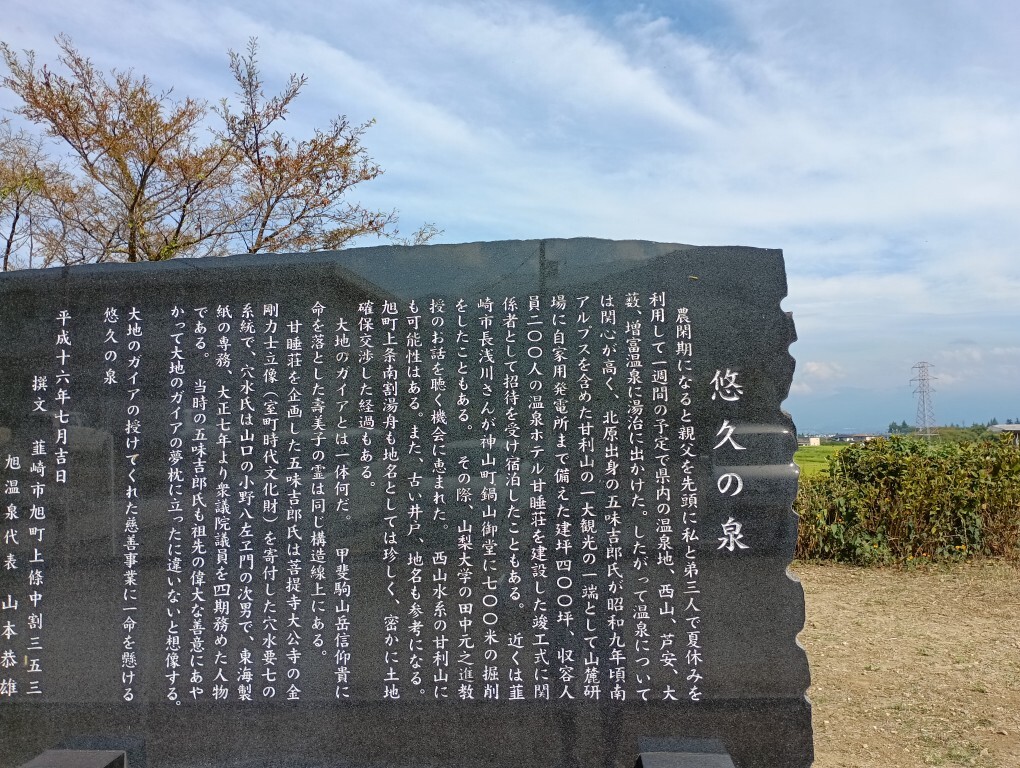 悠久の泉
農閑期になると親父を先頭に私と弟三人で夏休みを
利用して一週間の予定で県内の温泉地、西山、芦安、大
薮、増富温泉に湯治に出かけた。したがって温泉について
は関心が高く、北原出身の五味吉郎氏が昭和九年頃南
アルプスを含めた甘利山の一大観光の一端として山麓研
場に自家用発電所まで備えた建坪四〇〇坪、収容人
員二〇〇人の温泉ホテル甘睡荘を建設した竣工式に関
係者として招待を受け宿泊したこともある。 近くは韮
崎市長浅川さんが神山町鍋山御堂に七〇〇米の掘削
をしたこともある。 その際、山梨大学の田中元之進教
授のお話を聴く機会に恵まれた。 西山水系の甘利山に
も可能性はある。また、古い井戸、地名も参考になる。
旭町上条南割湯舟も地名としては珍しく、密かに土地
確保交渉した経過もある。
大地のガイアとは一体何だ。 甲斐駒山岳信仰貴に
命を落とした壽美子の霊は同じ構造線上にある。
甘睡荘を企画した五味吉郎氏は菩提寺大公寺の金
剛力士立像（室町時代文化財）を寄付した穴水要七の
系統で、穴水氏は山口の小野八左ヱ門の次男で、東海製
紙の専務、大正七年より衆議院議員を四期務めた人物
である。 当時の五味吉郎氏も祖先の偉大な善意にあや
かって大地のガイアの夢枕に立ったに違いないと想像する。
大地のガイアの授けてくれた慈善事業に一命を懸ける
悠久の泉
平成十六年七月吉日
撰文 韮崎市旭町上條中割三五三
旭温泉代表 山本恭雄